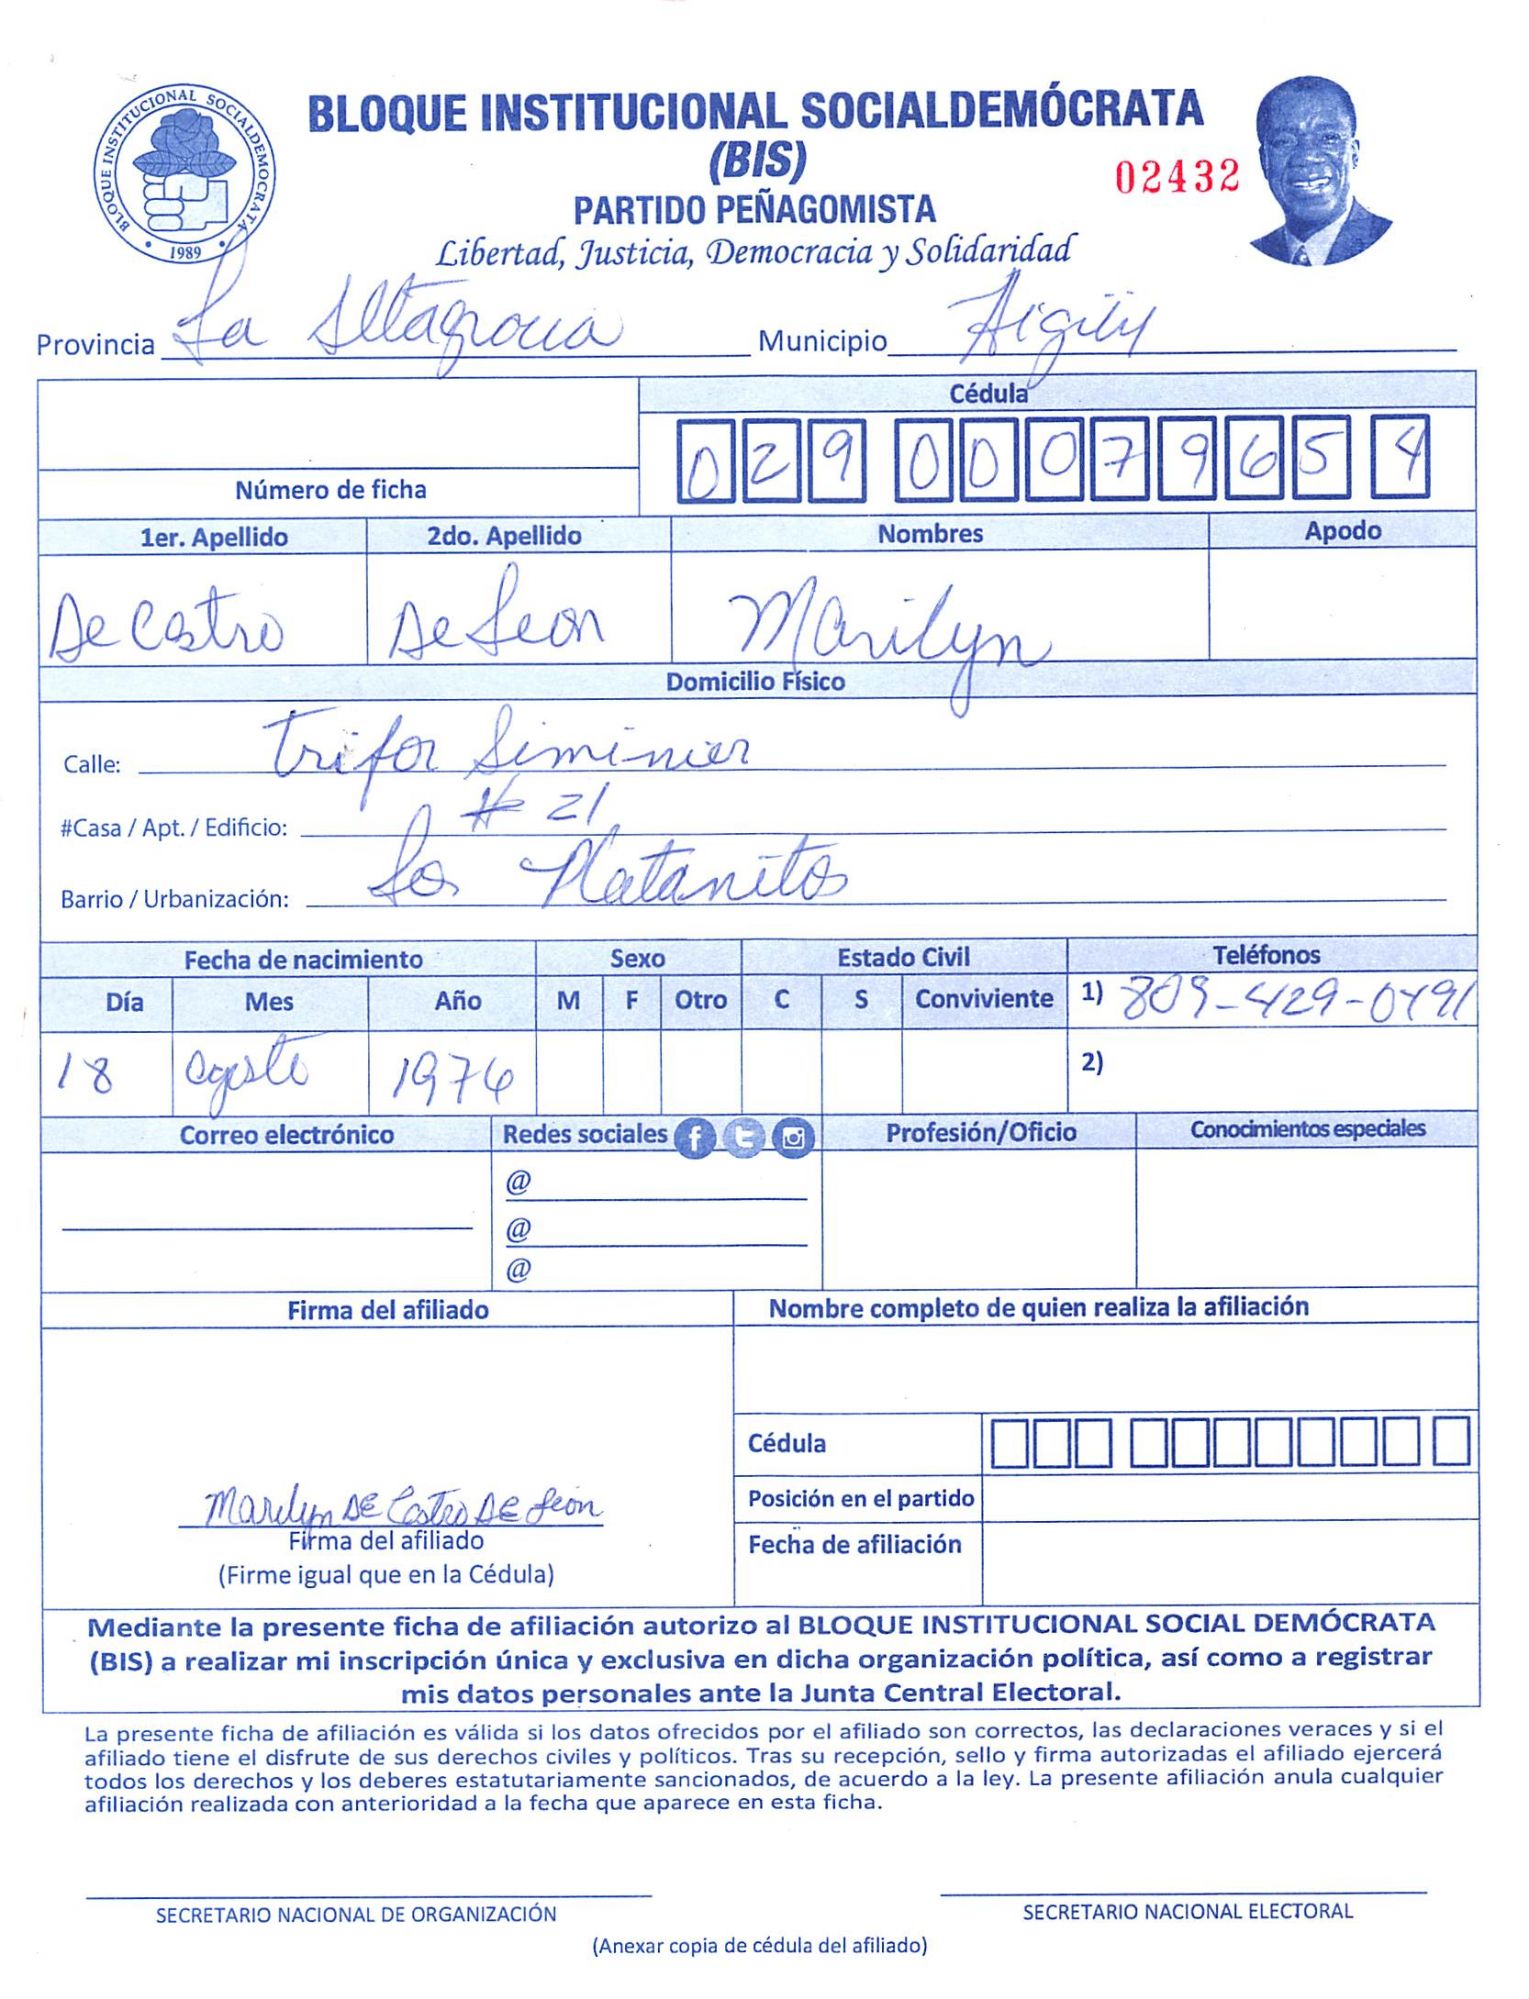 BLOQUE INSTITUCIONAL SOCIALDEMÓCRATA
1989
BLOQUE INSTITUCIONAL SOCIALDEMÓCRATA
(BIS)
02432
PARTIDO PEÑAGOMISTA
Libertad, Justicia, Democracia y Solidaridad
Provincia La Altagracia Municipio Higüey
Cédula
029 0007965 4
Número de ficha
1er. Apellido 2do. Apellido Nombres Apodo
De Castro De Leon Marilyn
Domicilio Físico
Calle: Trifor Siminier
#Casa / Apt. / Edificio: # 21
Barrio / Urbanización: Los Platanitos
Fecha de nacimiento Sexo Estado Civil Teléfonos
Día Mes Año M F Otro C S Conviviente 1) 809-429-0491
18 agosto 1976 2)
Correo electrónico Redes sociales Profesión/Oficio Conocimientos especiales
@
@
@
Firma del afiliado Nombre completo de quien realiza la afiliación
Cédula
Marilyn DE Castro DE Leon Posición en el partido
Firma del afiliado Fecha de afiliación
(Firme igual que en la Cédula)
Mediante la presente ficha de afiliación autorizo al BLOQUE INSTITUCIONAL SOCIAL DEMÓCRATA
(BIS) a realizar mi inscripción única y exclusiva en dicha organización política, así como a registrar
mis datos personales ante la Junta Central Electoral.
La presente ficha de afiliación es válida si los datos ofrecidos por el afiliado son correctos, las declaraciones veraces y si el
afiliado tiene el disfrute de sus derechos civiles y políticos. Tras su recepción, sello y firma autorizadas el afiliado ejercerá
todos los derechos y los deberes estatutariamente sancionados, de acuerdo a la ley. La presente afiliación anula cualquier
afiliación realizada con anterioridad a la fecha que aparece en esta ficha.
SECRETARIO NACIONAL DE ORGANIZACIÓN SECRETARIO NACIONAL ELECTORAL
(Anexar copia de cédula del afiliado)